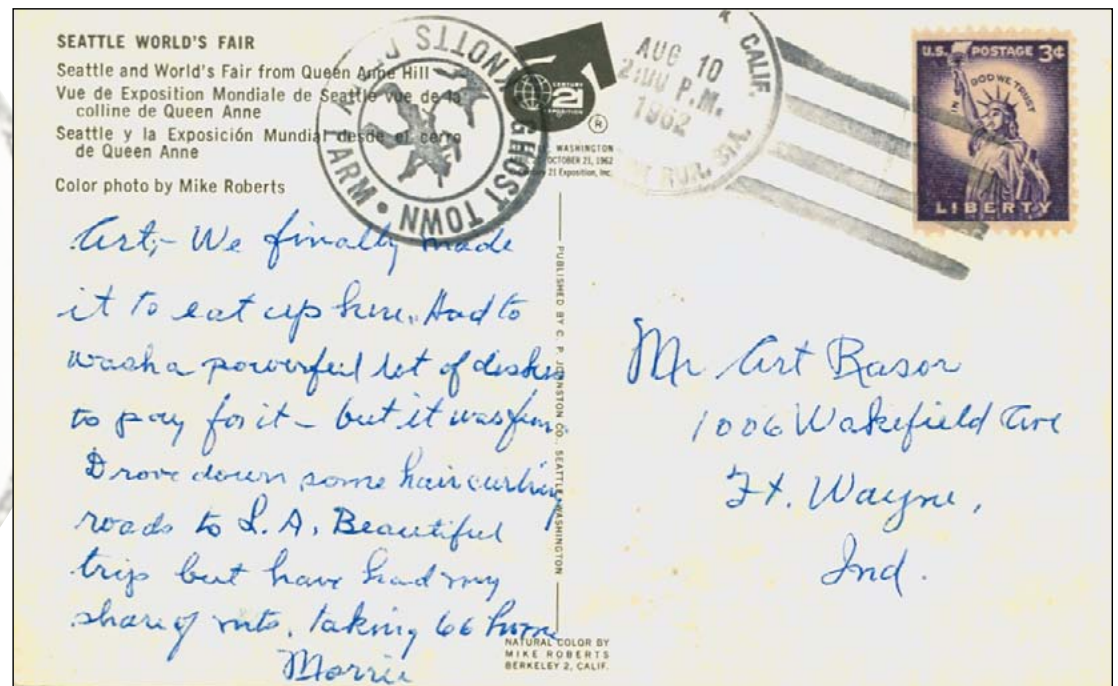 SEATTLE WORLD'S FAIR
Seattle and World's Fair from Queen Anne Hill
Vue de Exposition Mondiale de Seattle vue de la
colline de Queen Anne
Seattle y la Exposición Mundial desde el cerro
de Queen Anne
Color photo by Mike Roberts
KNOTTS
GHOST TOWN
CENTURY
21
EXPOSITION
®
WASHINGTON
OCTOBER 21, 1962
21 Exposition, Inc.
CALIF.
AUG 10
P.M.
1962
RUR. STA.
U.S. POSTAGE 3¢
IN GOD WE TRUST
LIBERTY
Art,- We finally made
it to eat up here. Had to
wash a powerful lot of dishes
to pay for it - but it was fun
Drove down some hair curling
roads to L.A. Beautiful
trip but have had my
share of mts. taking 66 home
Morrie
PUBLISHED BY C. P. JOHNSTON CO., SEATTLE, WASHINGTON
NATURAL COLOR BY
MIKE ROBERTS
BERKELEY 2, CALIF.
Mr Art Rasor
1006 Wakefield Ave
Ft. Wayne,
Ind.